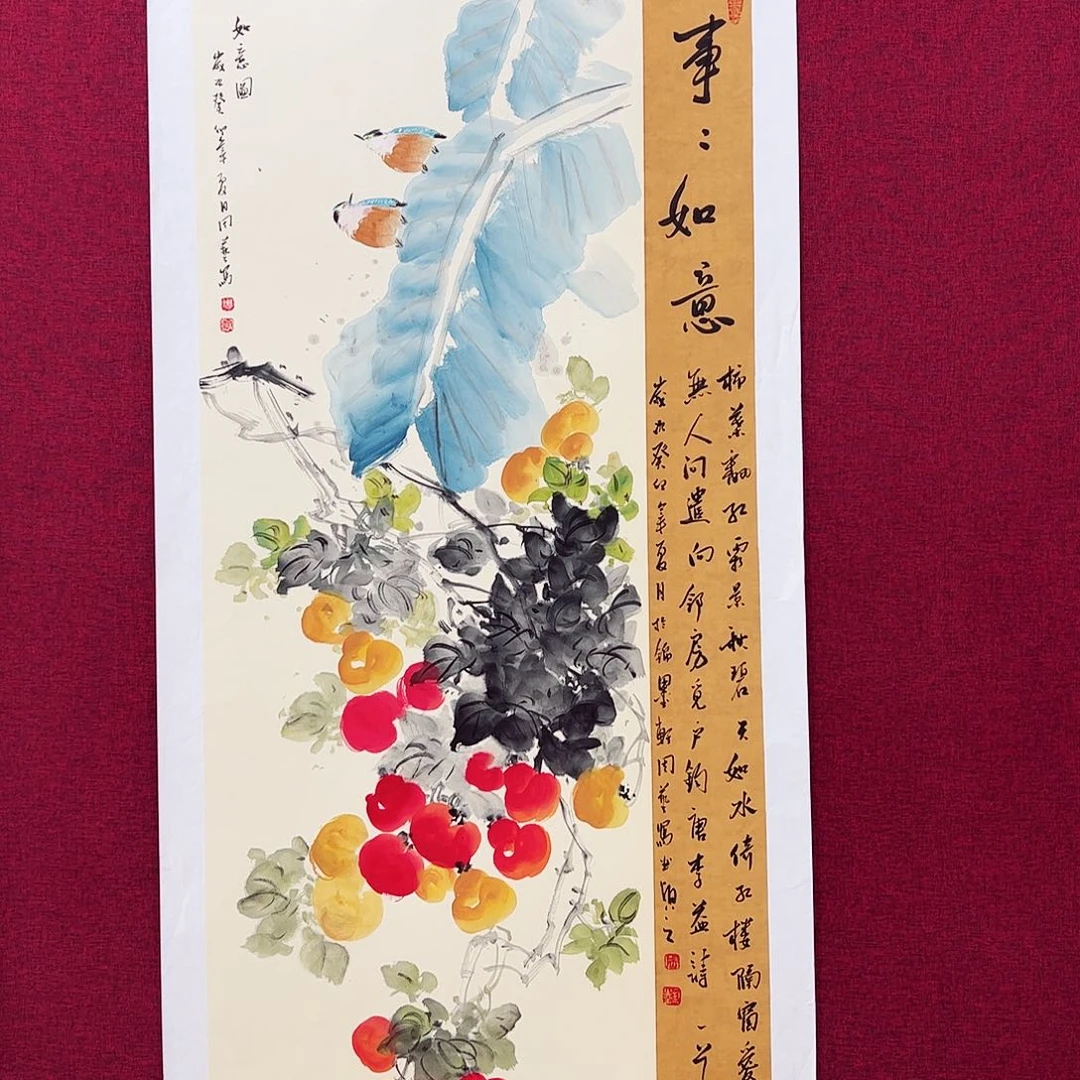 事〻如意
柿葉翻紅霜景秋碧天如水倚紅樓隔窗愛
無人問遣向鄰房覓戶鈎唐李益詩一
歲次癸卯年夏月於錦墨軒周藝寫並題之
如意圖
歲次癸卯年夏日周藝寫